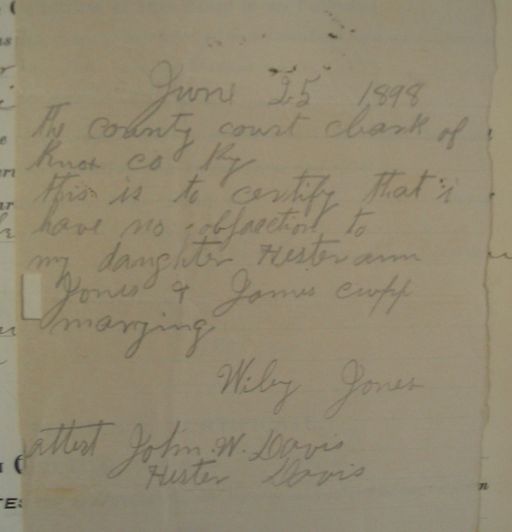 June 25 1898
the county court clark of
Knox co Ky
this is to certify that i
have no objaection to
my daughter Hester ann
Jones & James cupp
marrying
Wiley Jones
attest John. W. Davis
Hester Davis